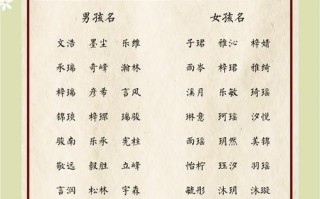 男孩名 女孩名
文浩 墨尘 乐维 于珺 雅沁 梓婧
承瑞 奇峰 瀚林 雨岑 梓瑶 雅绮
梓瑞 彦希 言风 溪月 乐敏 琦瑶
锦琰 梓琛 瑞骏 琳意 珂瑶 汐悦
骏南 乐承 宪柱 雨瑶 玥然 美锦
敬远 毅胜 立峰 怡柠 珏汐 羽瑶
言润 松林 宇森 毓彤 沐玥